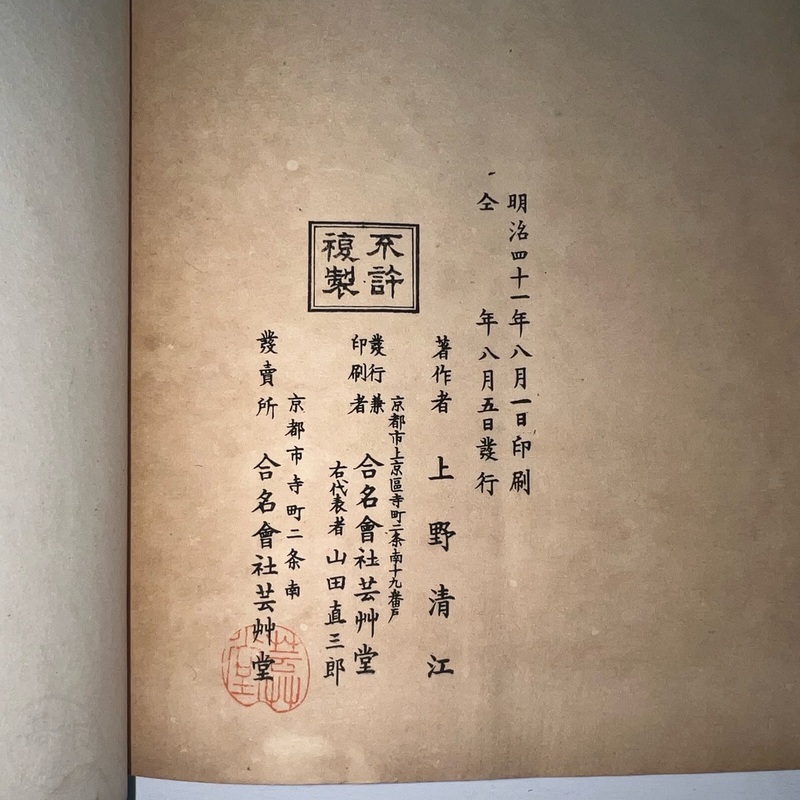 明治四十一年八月一日印刷
仝年八月五日發行
不許
複製
著作者 上野清江
京都市上京區寺町二条南十九番戸
發行兼
印刷者 合名會社芸艸堂
右代表者 山田直三郎
京都市寺町二条南
發賣所 合名會社芸艸堂
芸艸堂